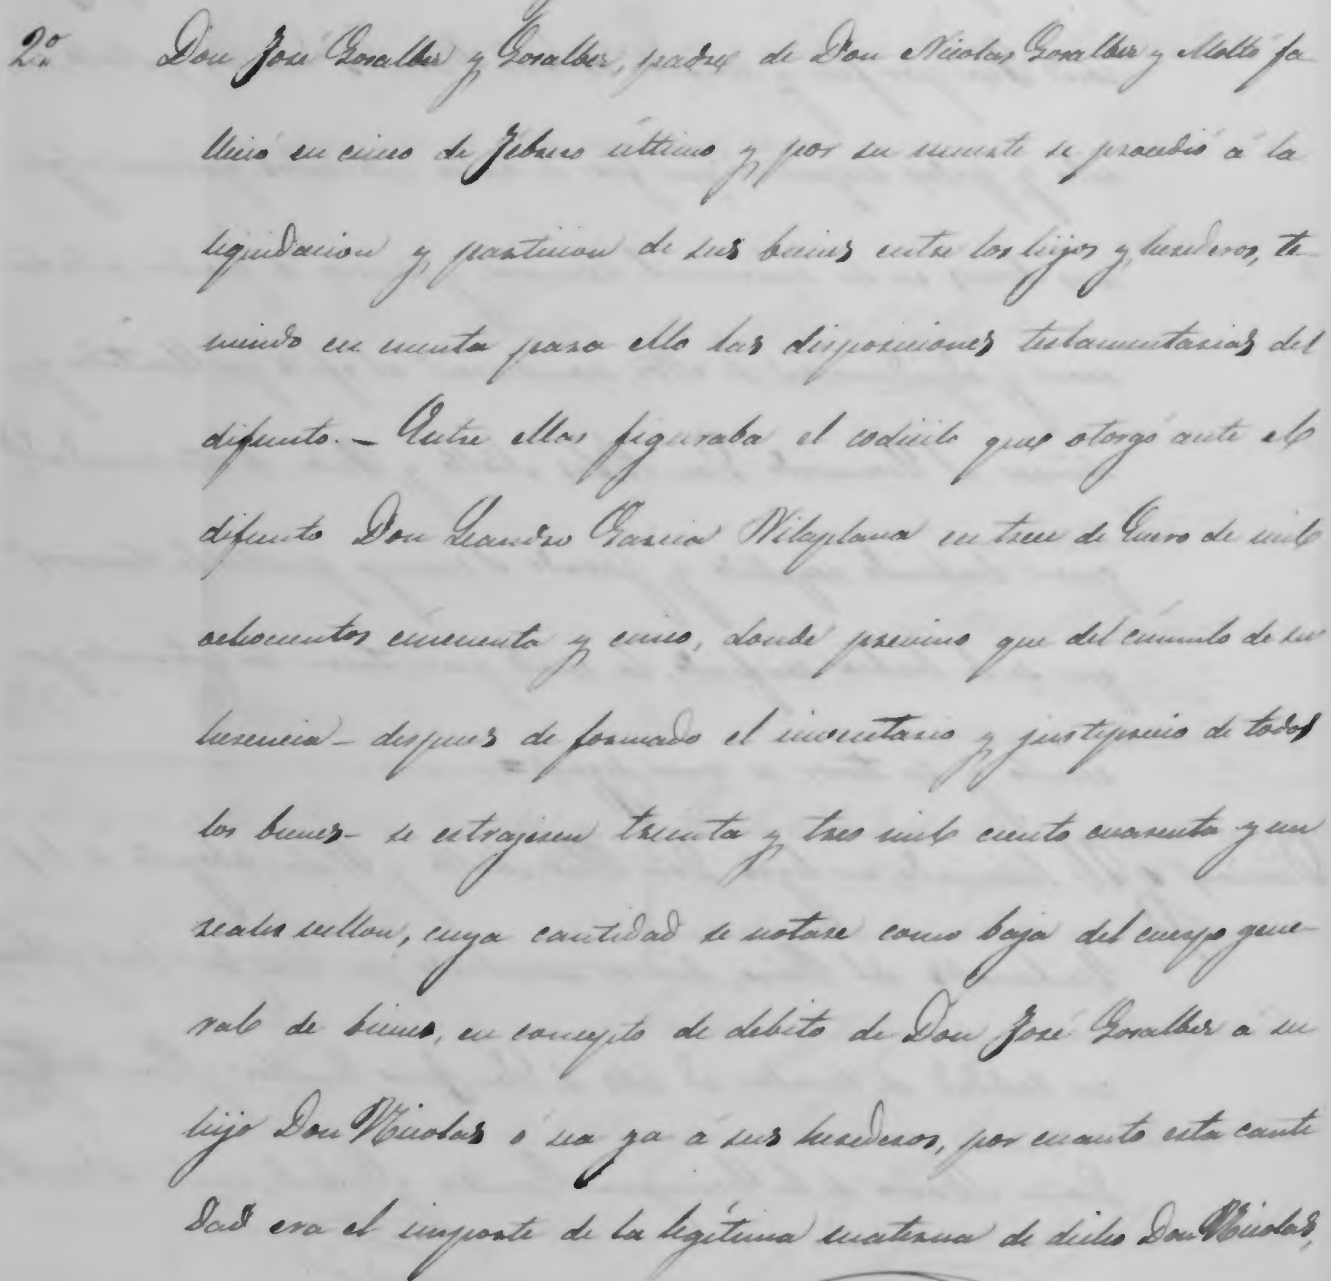 2.º Don José Gosalbez y Gosalbez, padre de Don Nicolas Gosalbez y Moltó fa-
lleció en cinco de Febrero último y por su muerte se procedió á la
liquidacion y particion de sus bienes entre los hijos y herederos, te-
niendo en cuenta para ello las disposiciones testamentarias del
difunto. – Entre ellas figuraba el codicilo que otorgó ante el
difunto Don Leandro Garcia Vilaplana en trece de Enero de mil
ochocientos cincuenta y cinco, donde previno que del cúmulo de su
herencia – despues de formado el inventario y justiprecio de todos
los bienes – se estrajesen treinta y tres mil ciento cuarenta y un
reales vellon, cuya cantidad se notase como baja del cuerpo gene-
ral de bienes, en concepto de debito de Don José Gosalbez á su
hijo Don Nicolas ó sea ya á sus herederos, por cuanto esta canti
dad era el importe de la legítima materna de dicho Don Nicolas,